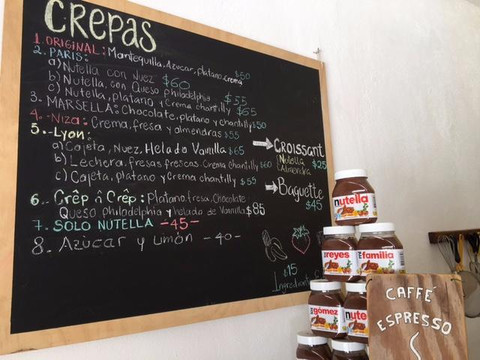 CREPAS
1. ORIGINAL: Mantequilla, Azucar, platano, crema $50
2. PARIS:
a) Nutella con Nuez $60
b) Nutella, con Queso Philadelphia $55
c) Nutella, platano y Crema chantilly $65
3. MARSELLA: Chocolate, platano y chantilly $50
4. Niza: Crema, fresa y almendras $55
5. Lyon:
a) Cajeta, Nuez, Helado Vainilla $65
b) Lechera, fresas frescas, Crema chantilly $60
c) Cajeta, platano y Crema chantilly $55
6. Crêp n Crêp: Platano, fresa, Chocolate
Queso Philadelphia y helado de Vainilla $85
7. SOLO NUTELLA -45-
8. Azúcar y Limón -40-
CROISSANT
Nutella
Almendra $25
Baguette
$45
$15
Ingrediente
nutella
reyes
familia
gómez
nute
CAFFÉ
ESPRESSO